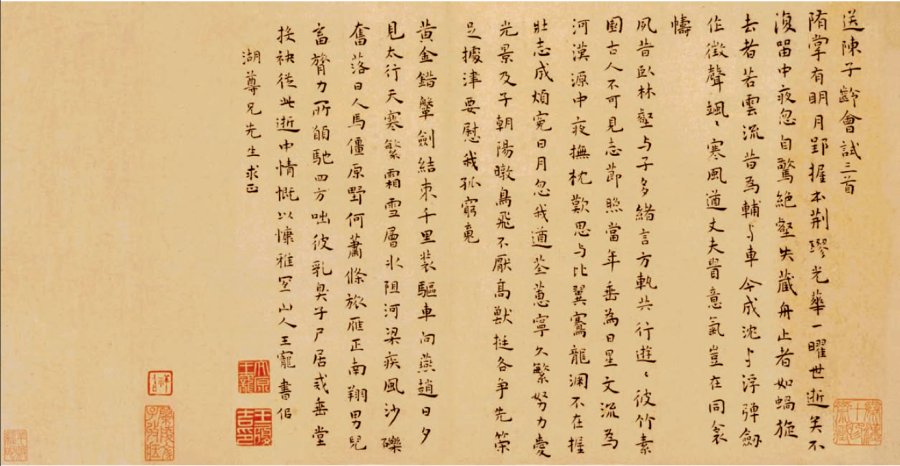 送陳子齡會試三首
隋掌有明月郢握本荊璆光華一曜世逝矣不
復留中夜忽自驚絕壑失藏舟止者如蝸旋
去者若雲流昔為輔与車今成沈与浮彈劍
作徵聲颯〻寒風遒丈夫貴意氣豈在同衾
幬
夙昔臥林壑与子多緒言方軌共行遊〻彼竹素
園古人不可見志節照當年垂為日星文流為
河漢源中夜撫枕歎思与比翼騫龍淵不在握
壯志成煩冤日月忽我遒荃蕙寧久繁努力愛
光景及子朝陽暾鳥飛不厭高獸挺各爭先策
足據津要慰我孤窮魂
黃金錯轡劍結束千里裝驅車向燕趙日夕
見太行天寒繁霜雪層冰阻河梁疾風沙礫
奮落日人馬僵原野何蕭條旅雁正南翔男兒
富膂力所願馳四方咄彼乳臭子尸居或垂堂
袂從此逝中情慨以慷雅宜山人王寵書
湖尊兄先生求正